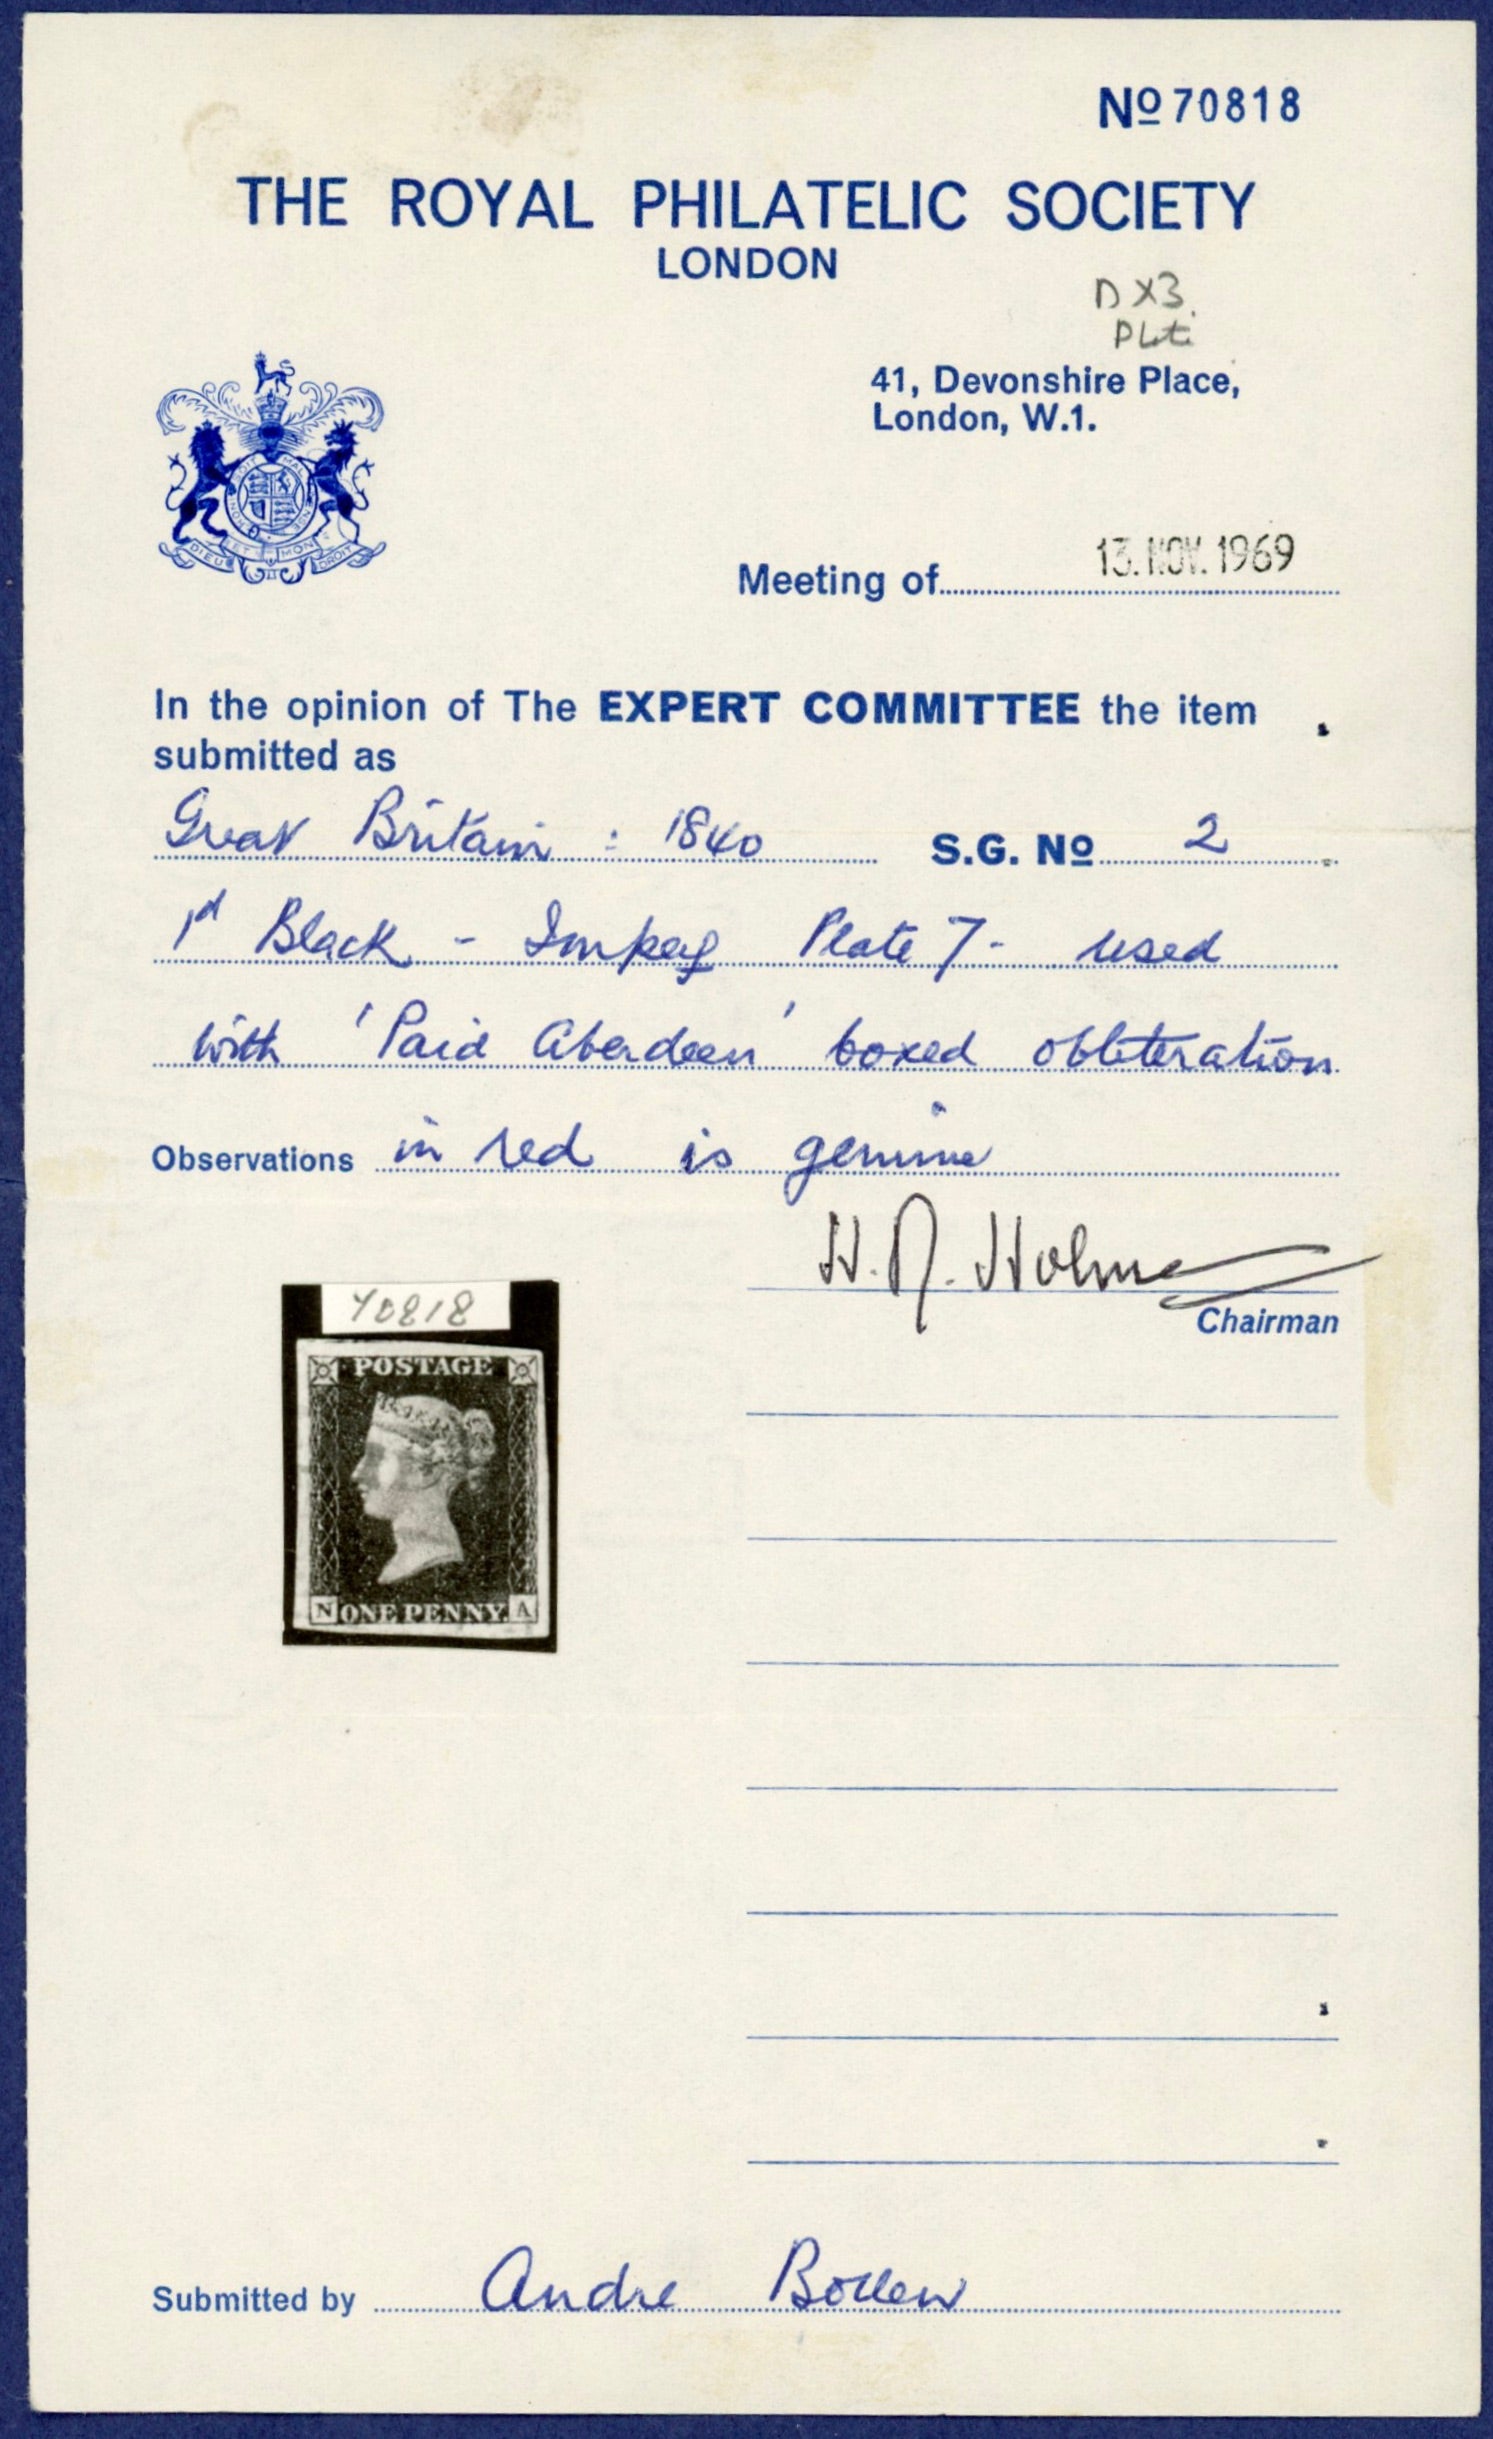 Nº 70818
THE ROYAL PHILATELIC SOCIETY
LONDON
D X3.
41, Devonshire Place,
London, W.1.
DIEU ET MON DROIT
Meeting of 13. NOV. 1969
In the opinion of The EXPERT COMMITTEE the item
submitted as
Great Britain : 1840 S.G. Nº 2
1d Black - Imperf Plate 7 - used
with 'Paid Aberdeen' boxed obliteration
Observations in red is genuine
H. R. Holmes
Chairman
70818
POSTAGE
N ONE PENNY. A
Submitted by Andre Bollen